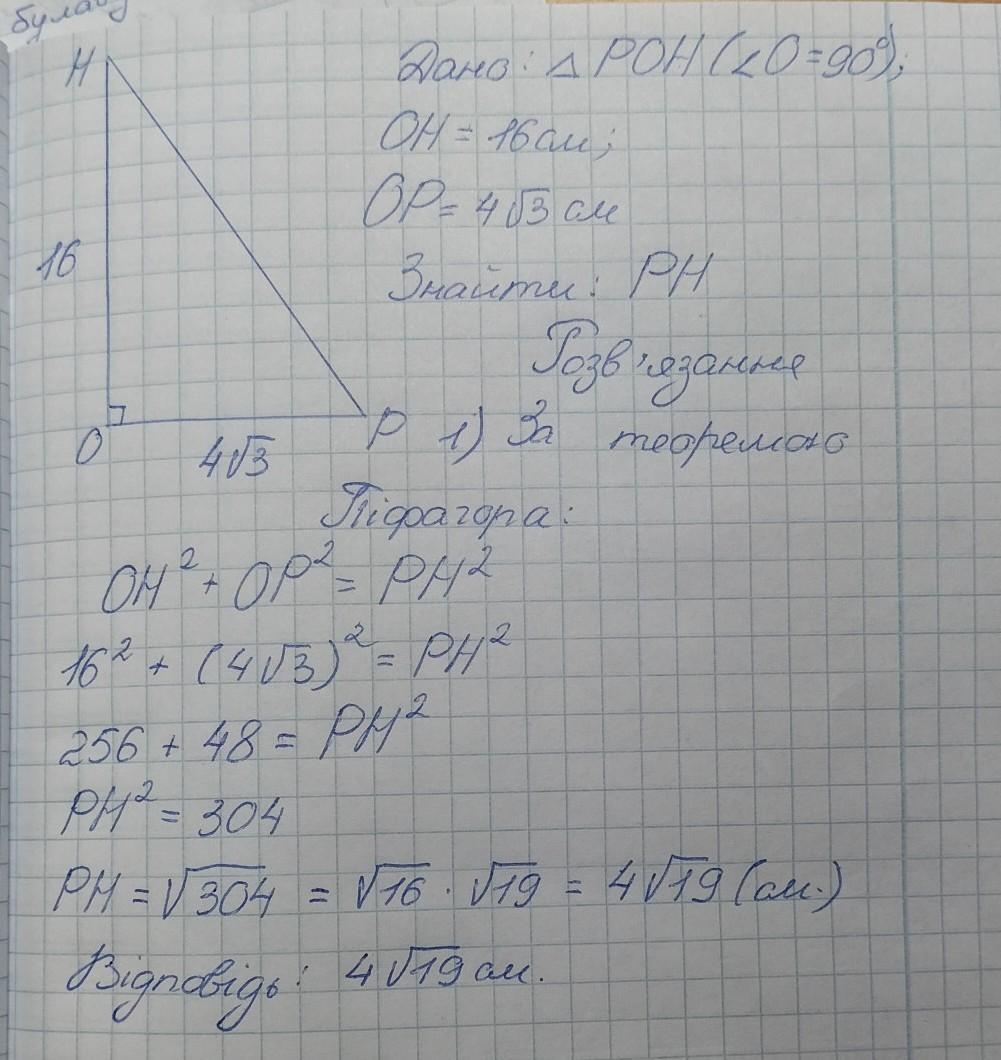 булав
H
Дано: △ POH (∠O=90°);
OH = 16 см;
OP = 4√3 см
16
Знайти: PH
Розв'язання
O
4√3
P
1) За теоремою
Піфагора:
OH² + OP² = PH²
16² + (4√3)² = PH²
256 + 48 = PH²
PH² = 304
PH = √304 = √16 · √19 = 4√19 (см.)
Відповідь: 4√19 см.